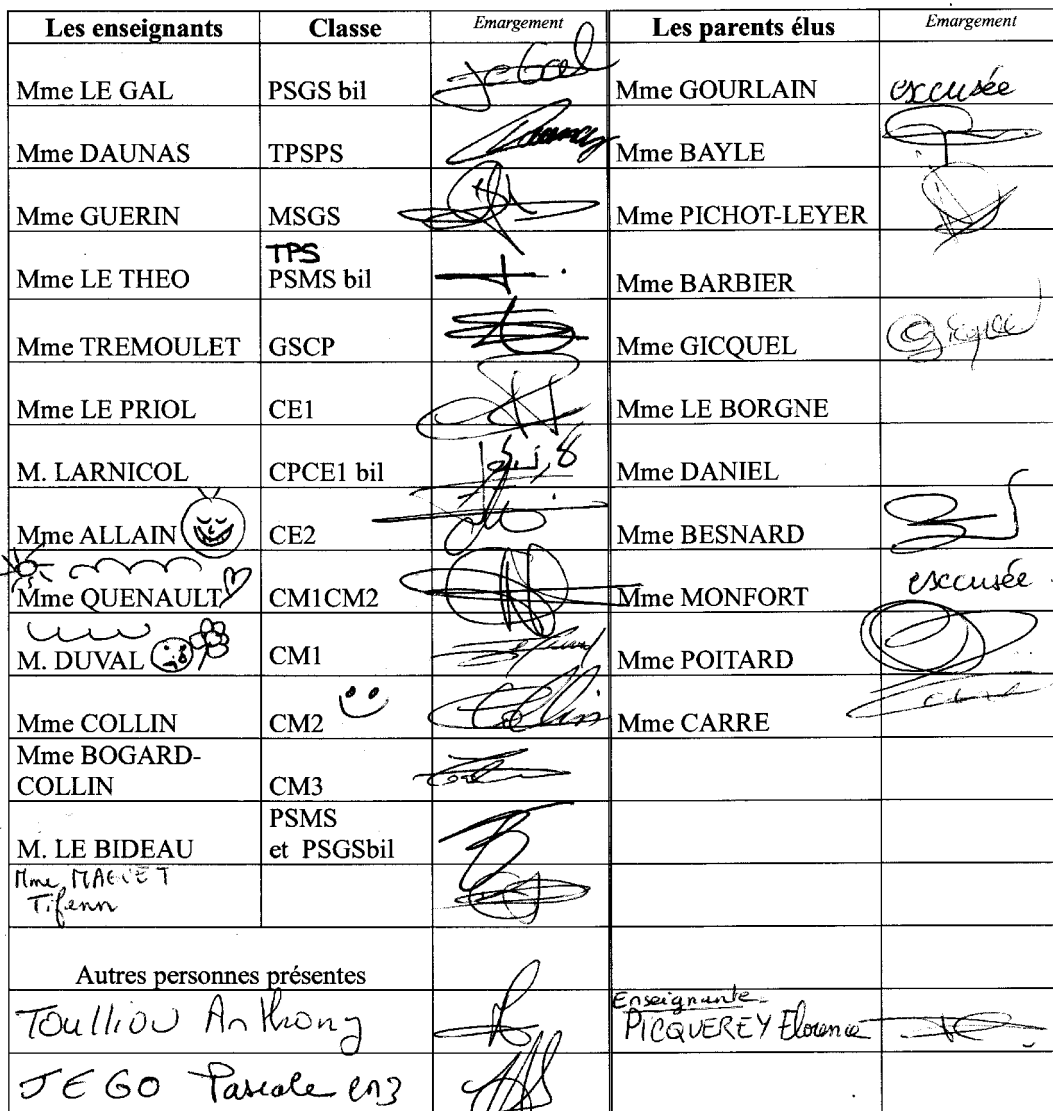 Les enseignants Classe Emargement Les parents élus Emargement
Mme LE GAL PSGS bil Le Gal Mme GOURLAIN excusée
Mme DAUNAS TPSPS Mme BAYLE
Mme GUERIN MSGS Mme PICHOT-LEYER
TPS
Mme LE THEO PSMS bil Mme BARBIER
Mme TREMOULET GSCP Mme GICQUEL Gicquel
Mme LE PRIOL CE1 Mme LE BORGNE
M. LARNICOL CPCE1 bil Mme DANIEL
Mme ALLAIN CE2 Mme BESNARD
Mme QUENAULT CM1CM2 Mme MONFORT excusée
M. DUVAL CM1 Mme POITARD
Mme COLLIN CM2 Collin Mme CARRE
Mme BOGARD-
COLLIN CM3
PSMS
M. LE BIDEAU et PSGSbil
Mme
Tifenn
Autres personnes présentes
Toulliou Anthony
Enseignante
PICQUEREY Florence
JEGO Pascale CM3